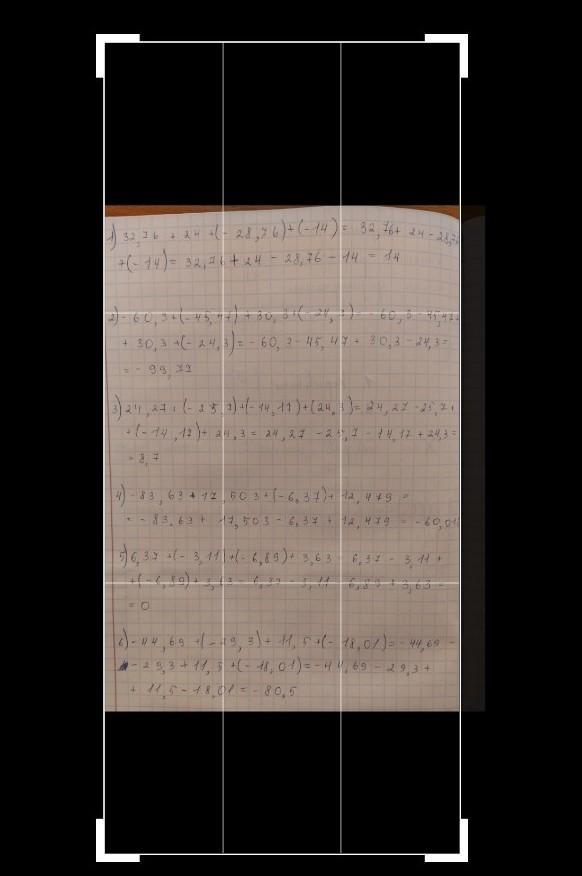 1) 32,76 + 24 + (- 28,76) + (-14) = 32,76 + 24 - 28,76
+(-14) = 32,76 + 24 - 28,76 - 14 = 14
2) - 60,3 + (- 45,47) + 30,3 + (- 24,3) = - 60,3 - 45,47 +
+ 30,3 + (- 24,3) = - 60,3 - 45,47 + 30,3 - 24,3 =
= - 99,77
3) 24,27 + (- 25,7) + (-14,17) + (24,3) = 24,27 - 25,7 +
+ (-14,17) + 24,3 = 24,27 - 25,7 - 14,17 + 24,3 =
= 8,7
4) - 83,63 + 17,503 + (-6,37) + 12,479 =
= - 83,63 + 17,503 - 6,37 + 12,479 = - 60,01
5) 6,37 + (- 3,11) + (- 6,89) + 3,63 = 6,37 - 3,11 +
+(- 6,89) + 3,63 = 6,37 - 3,11 - 6,89 + 3,63 =
= 0
6) - 44,69 + (- 29,3) + 11,5 + (- 18,01) = - 44,69 -
- 29,3 + 11,5 + (- 18,01) = - 44,69 - 29,3 +
+ 11,5 - 18,01 = - 80,5